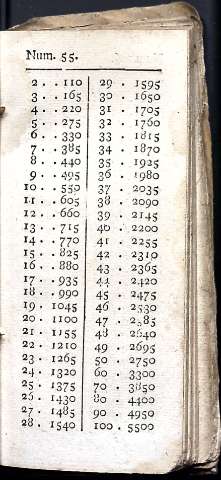 Num. 55.
2 . . 110 29 . 1595
3 . . 165 30 . 1650
4 . . 220 31 . 1705
5 . . 275 32 . 1760
6 . . 330 33 . 1815
7 . . 385 34 . 1870
8 . . 440 35 . 1925
9 . . 495 36 . 1980
10 . . 550 37 . 2035
11 . . 605 38 . 2090
12 . . 660 39 . 2145
13 . . 715 40 . 2200
14 . . 770 41 . 2255
15 . . 825 42 . 2310
16 . . 880 43 . 2365
17 . . 935 44 . 2420
18 . . 990 45 . 2475
19 . 1045 46 . 2530
20 . 1100 47 . 2585
21 . 1155 48 . 2640
22 . 1210 49 . 2695
23 . 1265 50 . 2750
24 . 1320 60 . 3300
25 . 1375 70 . 3850
26 . 1430 80 . 4400
27 . 1485 90 . 4950
28 . 1540 100 . 5500